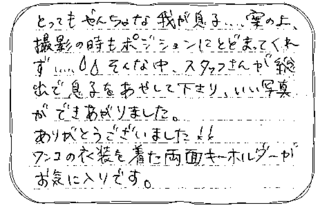 とってもやんちゃな我が息子…、案の上、
撮影の時もポジションにとどまってくれ
ず……💧💧そんな中、スタッフさんが総
出で息子をあやして下さり、いい写真
ができあがりました。
ありがとうございました!!
ワンコの衣装を着た両面キーホルダーが
お気に入りです。